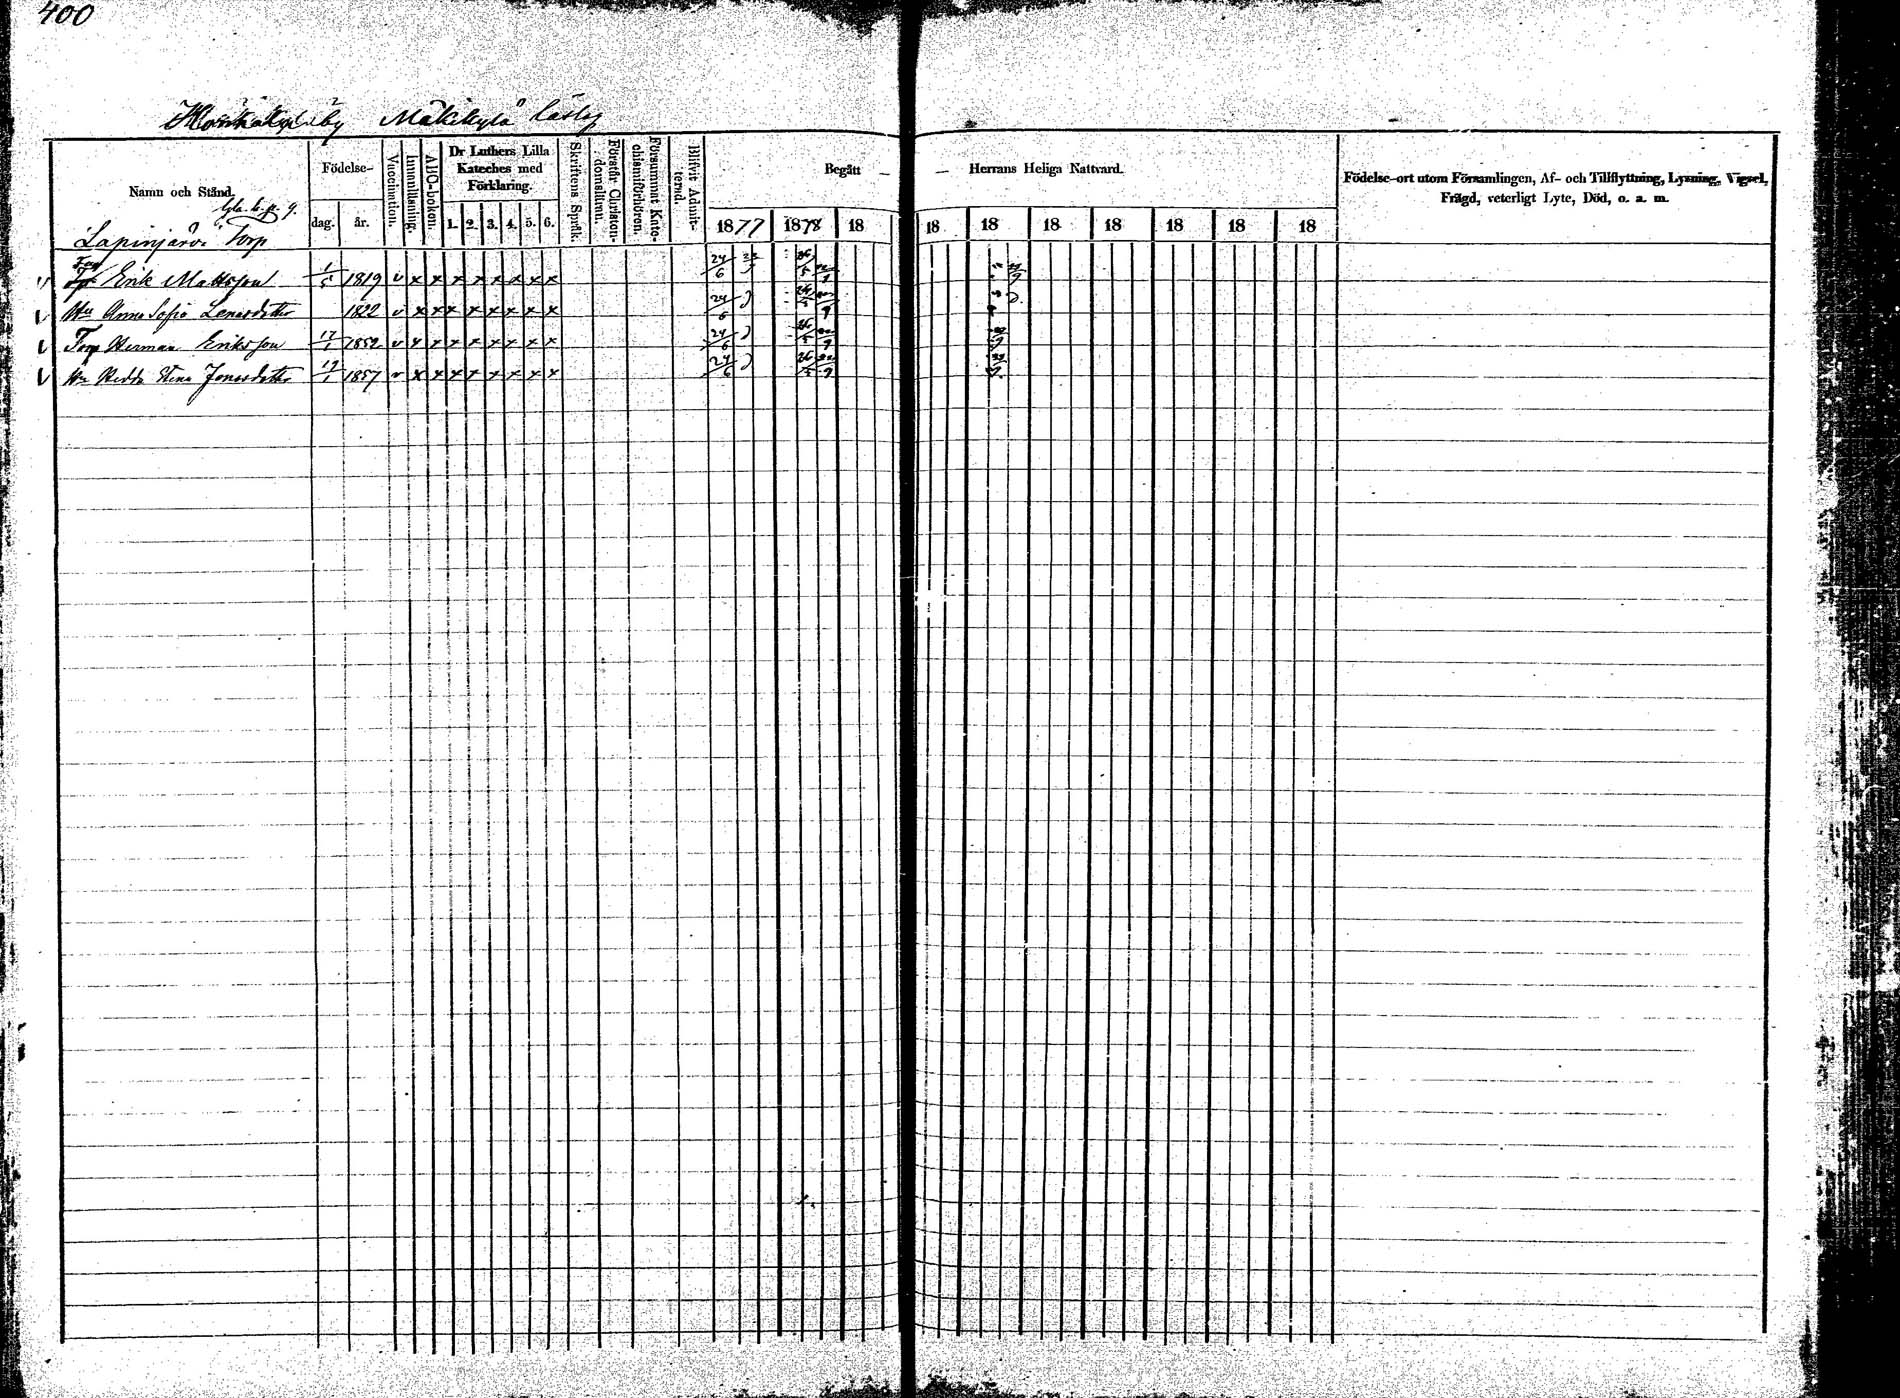 400
by Mäkikylä läslag
Namn och Stånd.
Födelse-
dag. år.
Vaccination.
Innanläsning.
ABC-boken.
Dr Luthers Lilla Kateches med Förklaring.
1. 2. 3. 4. 5. 6.
Skriftens Språk.
Förstår Christendomslären.
Försummat Katechismiförhören.
Blifvit Admitterad.
Begått — — Herrans Heliga Nattvard.
1877 1878 18 18 18 18 18 18 18 18
Födelse-ort utom Församlingen, Af- och Tillflyttning, Lysning, Vigsel,
Frägd, veterligt Lyte, Död, o. a. m.
Lapinjärvi Torp
Erik Mattsson 1/5 1819 v x x x x x x x x 24/6
Hu Anna Sofia Lenasdotter 1822 v x x x x x x x x 24/6
Torp Herman Eriksson 17/1 1852 v x x x x x x x x 24/6
Hu Hedda Stina Jonasdotter 19/1 1857 v x x x x x x x x 24/6